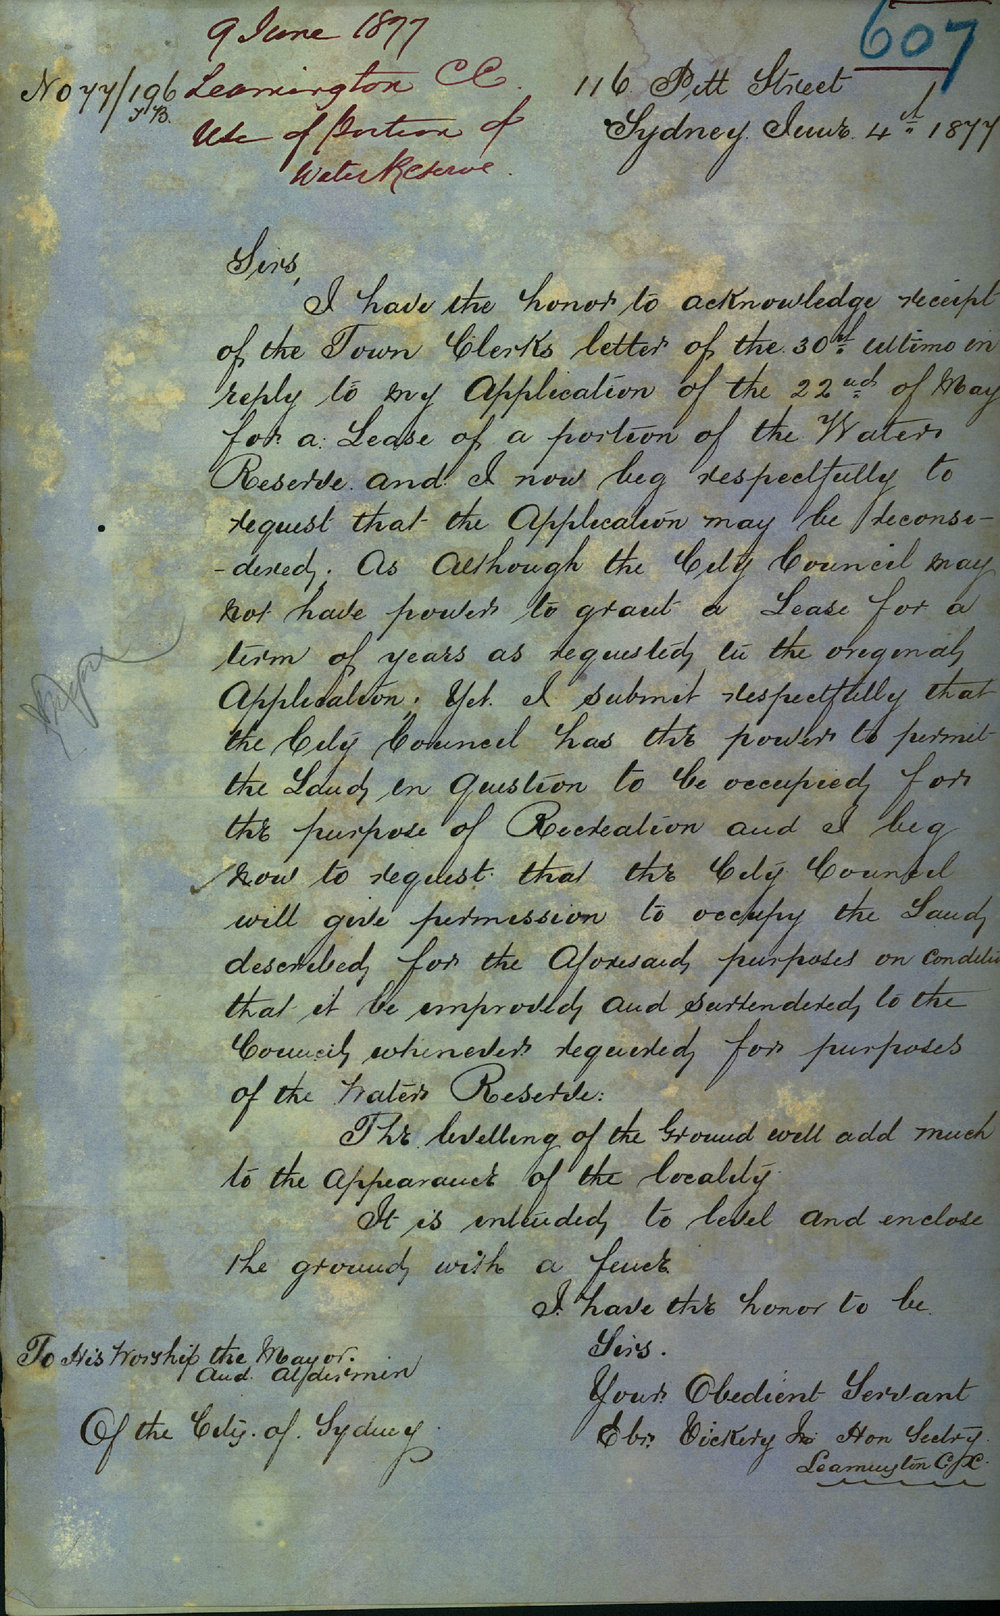 607
9 June 1877
No 77/196
Leamington CC
Use of Portion of
Water Reserve.
116 Pitt Street
Sydney. June. 4th 1877
Sirs,
I have the honor to acknowledge receipt
of the Town Clerks letter of the 30th ultimo in
reply to my Application of the 22nd of May
for a Lease of a portion of the Water
Reserve and I now beg respectfully to
request that the Application may be reconsi-
-dered; As Although the City Council may
not have power to grant a Lease for a
term of years as requested, in the original,
Application; Yet I submit respectfully that
the City Council has the power to permit
the Land, in Question to be occupied, for
the purpose of Recreation and I beg
now to request that the City Council
will give permission to occupy the Land,
described, for the Aforesaid, purposes on condition
that it be improved, and surrendered, to the
Council, whenever required, for purposes
of the Water Reserve:
The levelling of the Ground will add much
to the Appearance of the locality
It is intended, to level and enclose
the ground, with a fence
I have the honor to be.
Sirs.
Your Obedient Servant
Ebr. Vickery Jr. Hon Secty.
Leamington C.C.
To His Worship the Mayor.
And Aldermen
Of the City. of. Sydney.